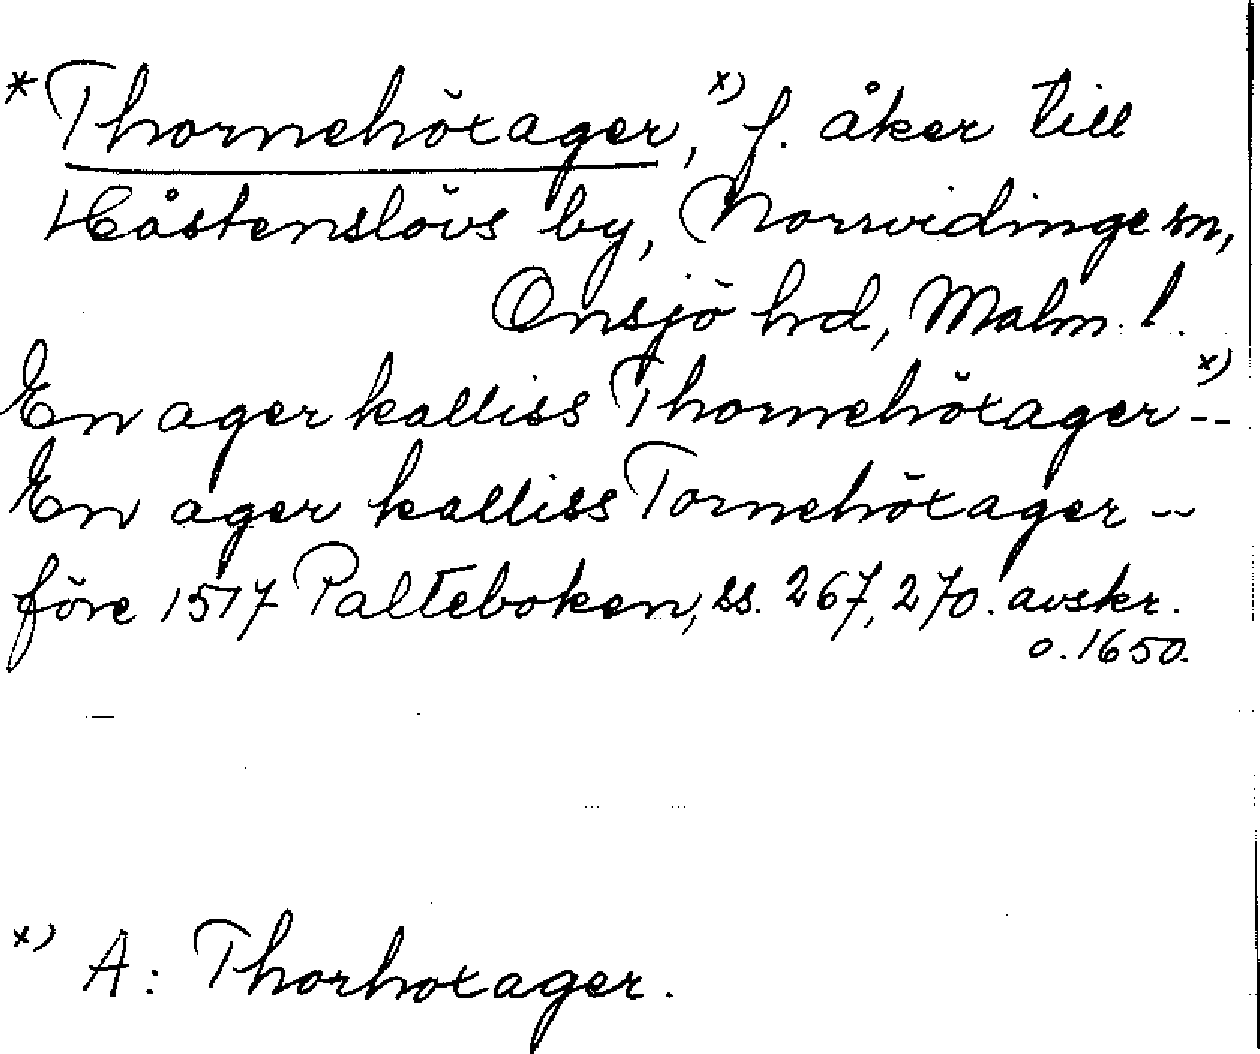 *Thornehöxager,ˣ⁾ f. åker till
Håstenslövs by, Norrvidinge sn,
Onsjö hd, Malm. l.
En ager kalliss Thornehöxagerˣ⁾--
En ager kalliss Tornehöxager --
före 1517 Palteboken, ss. 267, 270. avskr.
o. 1650.
ˣ⁾ A: Thorhoxager.